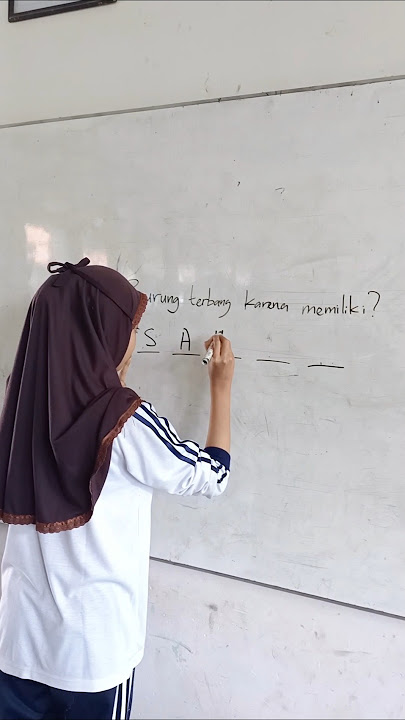 Burung terbang karena memiliki?
S A